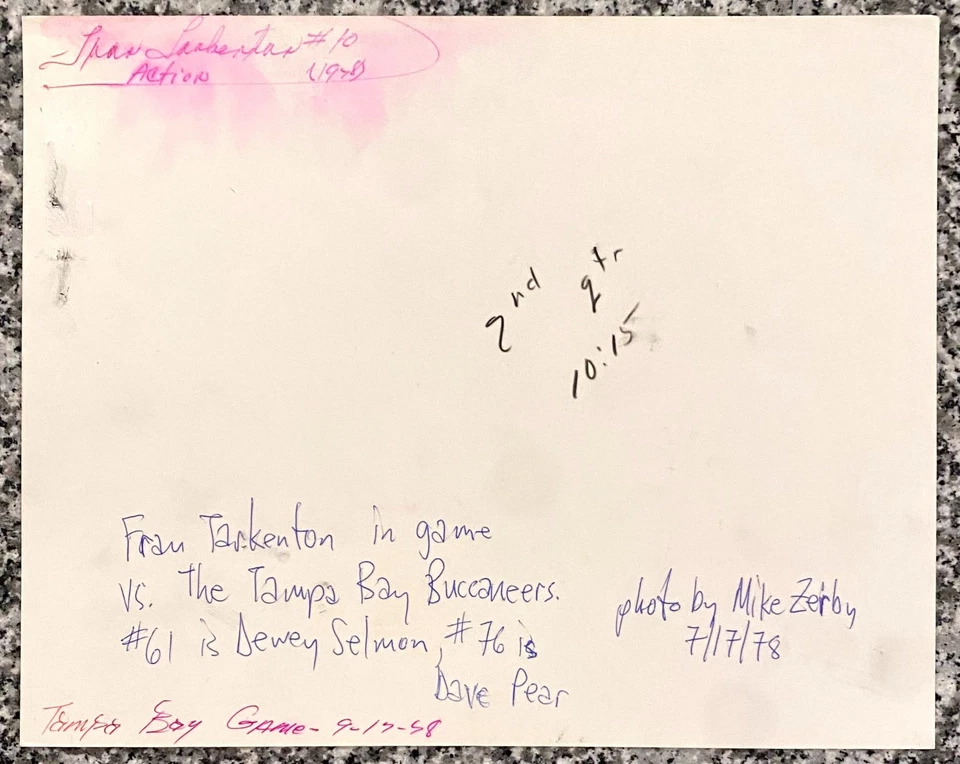 Fran Tarkenton #10
Action (1978)
2nd qtr
10:15
Fran Tarkenton in game
vs. the Tampa Bay Buccaneers.
#61 is Dewey Selmon, #76 is
Dave Pear
photo by Mike Zerby
7/17/78
Tampa Bay Game - 9-17-78